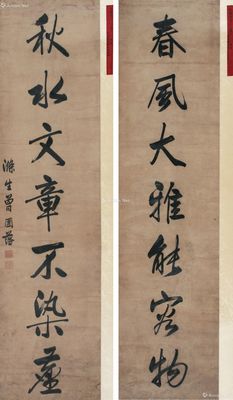 春風大雅能容物
秋水文章不染塵
滌生曾國藩